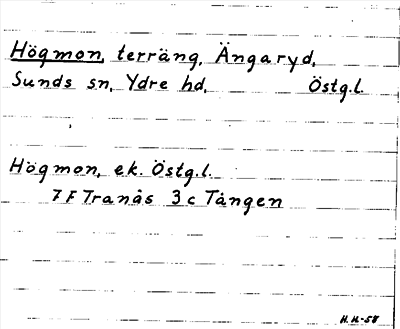 Högmon, terräng, Ängaryd,
Sunds sn, Ydre hd, Östg.l.
Högmon, ek. Östg.l.
7 F Tranås 3 c Tången
H.H.-58